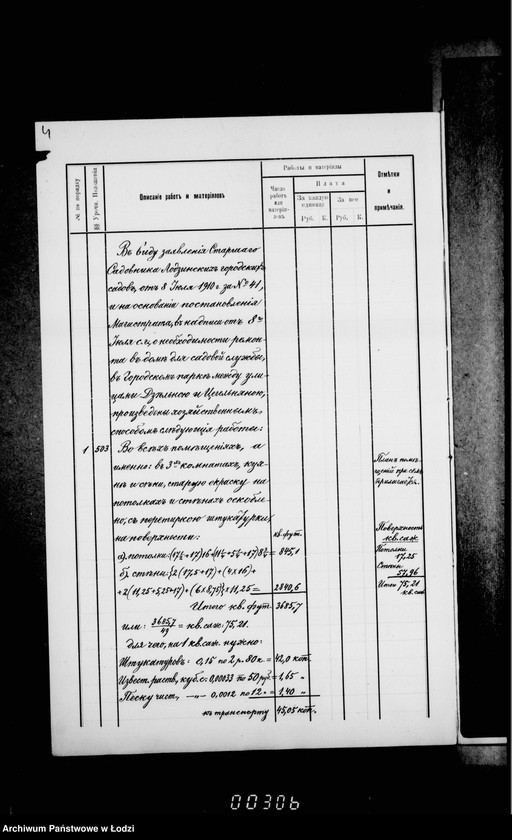 4
№ по порядку
§§ Урочн. Положенія
Описаніе работ и матеріалов
Работы и матеріалы
Число работ или матеріалов
Плата
За каждую единицу
За все
Руб. К. Руб. К.
Отмѣтки и примѣчанія.
Въ виду заявленія Старшаго
Садовника Лодзинскихъ городскихъ
садовъ, отъ 8 Іюля 1910 г. за № 41,
и на основаніи постановленія
Магистрата, въ надписи отъ 8го
Іюля с.г., о необходимости ремон-
та въ домѣ для садовой службы,
въ Городскомъ паркѣ между ули-
цами Дзѣльною и Цегельняною,
произведены хозяйственнымъ
способомъ слѣдующія работы:
1 503 Во всѣхъ помѣщеніяхъ, а
именно: въ 3хъ комнатахъ, кух-
нѣ и сѣни, старую окраску на
потолкахъ и стѣнахъ оскобле-
но, съ перетиркою штукатурки,
на поверхности: кв. фут.
а) потолки: 845,1
б) стѣны: {2(17,5+17)+(4×16)+
+2(11,25+5,25+17)+(6×8,75)}×11,25= 2840,6
Итого кв. фут. 3685,7
или: 3685,7/49 = кв. саж. 75,21.
Для чего, на 1 кв. саж. нужно:
Штукатуровъ: 0,15 по 2 р. 80 к. = 42,0 коп.
Извест. раств., куб. с. 0,00033 по 50 руб. = 1,65 "
Песку чист. —"— 0,0012 по 12 " = 1,40 "
къ транспорту 45,05 коп.
Планъ помѣ-
щеній при семъ
прилагаетъ.
Поверхность
кв. саж.
Потолки
17,25
Стѣны
57,96
Итого 75,21
кв. саж.
00306
Archiwum Państwowe w Łodzi